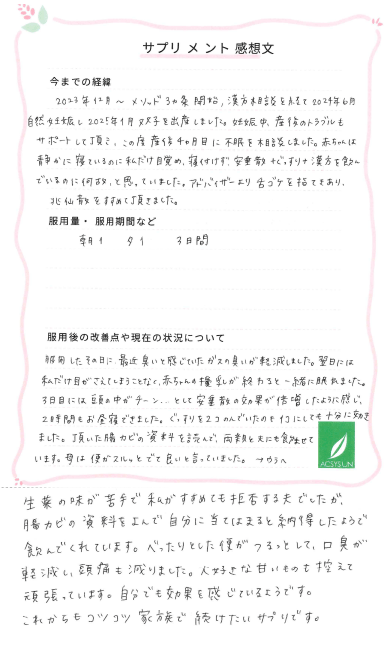 サプリメント感想文
今までの経緯
2023年12月〜 メソッド3ヵ条開始, 漢方相談を経て2024年6月
自然妊娠し2025年1月 女子を出産しました。妊娠中、産後のトラブルも
サポートして頂き、この度産後4ヶ月目に不眠を相談しました。赤ちゃんは
静かに寝ているのに私だけ目覚め、寝付けず、安重散+ぐっすり+漢方を飲ん
でいるのに何故、と思っていました。アドバイザーより舌ゴケを指てきあり、
兆仙散をすすめて頂きました。
服用量・ 服用期間など
朝1 夕1 3日間
服用後の改善点や現在の状況について
服用したその日に最近臭いと感じていたガスの臭いが軽減しました。翌日には
私だけ目がさえてしまうことなく、赤ちゃんの授乳が終わると一緒に眠れました。
3日目には頭の中がテーン... として安重散の効果が倍増したように感じ、
2時間もお昼寝できました。ぐっすりを2コのんでいたのも1コにしても十分に効き
ました。頂いた腸カビの資料を読んで、両親と夫にも飲ませて
います。母は便がスルッとでて良いと言っていました。→うらへ
ACSYSLIN
生薬の味が苦手で私がすすめても拒否する夫でしたが、
腸カビの資料をよんで自分に当てはまると納得したようで
飲んでくれています。べったりとした便がつるっとして、口臭が
軽減し、頭痛も減りました。大好きな甘いものも控えて
頑張っています。自分でも効果を感じているようです。
これからもコツコツ家族で続けたいサプリです。